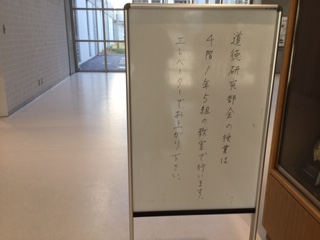 道徳研究部会の授業は
4階1年5組の教室で行います。
エレベーターでお上がり下さい。